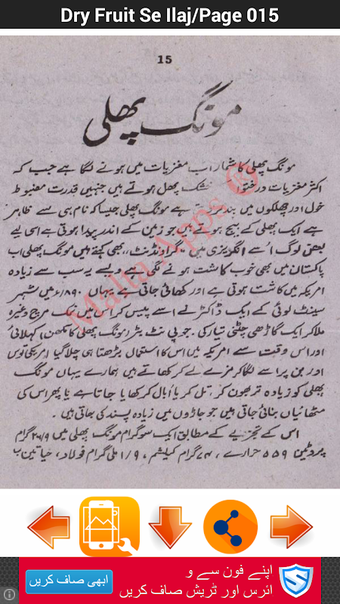 Dry Fruit Se Ilaj/Page 015
15
مونگ پھلی
مونگ پھلی کا شمار اب مغزیات میں ہونے لگا ہے جب کہ
اکثر مغزیات درختوں خشک پھل ہوتے ہیں جنہیں قدرت مضبوط
خول اور چھلکوں میں بند ہے مونگ پھلی جیسا کہ نام ہی سے ظاہر
ہے ایک پھلی کے بیج ہوتے ہیں جو زمین کے اندر پیدا ہوتی ہے اسی لیے
بعض لوگ اسے انگریزی میں گراؤنڈنٹ بھی کہتے ہیں مونگ پھلی اب
پاکستان میں بھی خوب کاشت ہونے لگی ہے ویسے یہ سب سے زیادہ
امریکہ میں کاشت ہوتی ہے اور کھائی جاتی ہے یہاں ۱۸۹۰ء میں شہر
سینٹ لوئی کے ایک ڈاکٹر نے اسے پیس کر اس میں مرچ وغیرہ
ملا کر ایک گاڑھی چٹنی تیار کی۔ جو پی نٹ بٹر (مونگ پھلی کا مکھن) کہلائی
اور اس وقت سے امریکہ میں اس کا استعمال بڑھتا ہی چلا گیا امریکی توس
اور جن پر اسے لگا کر مزے لے کر کھاتے ہیں ہمارے یہاں مونگ
پھلی کو زیادہ تر بھون کر، تل کر یا ابال کر کھایا جاتا ہے یا پھر اس کی
مٹھائیاں بنائی جاتی ہیں جو جاڑوں میں زیادہ پسند کی جاتی ہیں۔
اس کے تجزیے کے مطابق ایک سو گرام مونگ پھلی میں گرام
پروٹین ۵۵۹ حرارے، ۷۴ گرام کیلشیم، ۱/۹ ملی گرام فولاد، حیاتین ب
Malhi Apps ®
اپنے فون سے و
ائرس اور ٹریش صاف کریں
ابھی صاف کریں